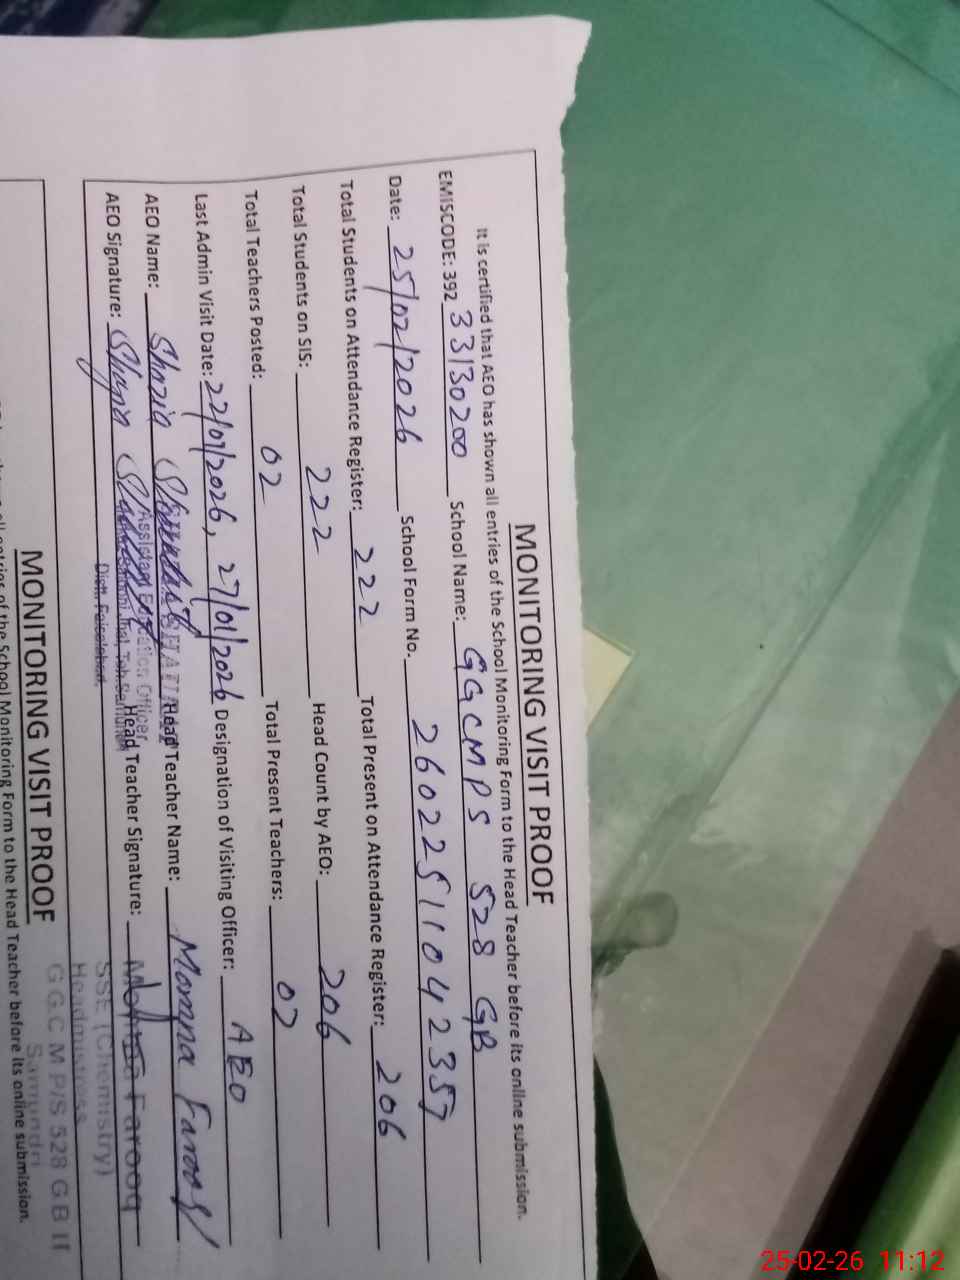 MONITORING VISIT PROOF
It is certified that AEO has shown all entries of the School Monitoring Form to the Head Teacher before its online submission.
EMISCODE: 392 33130200 School Name: GGCMPS 528 GB
Date: 25/02/2026 School Form No. 26022511042357
Total Students on Attendance Register: 222 Total Present on Attendance Register: 206
Total Students on SIS: 222 Head Count by AEO: 206
Total Teachers Posted: 02 Total Present Teachers: 02
Last Admin Visit Date: 22/01/2026, 27/01/2026 Designation of Visiting Officer: AEO
AEO Name: Shazia Head Teacher Name: Momna Farooq
AEO Signature: Head Teacher Signature:
Assistant Education Officer
Distt. Faisalabad.
Momna Farooq
SSE (Chemistry)
Headmistress
G G.C M P/S 528 G B II
Samundri
MONITORING VISIT PROOF
all entries of the School Monitoring Form to the Head Teacher before its online submission.
25-02-26 11:12